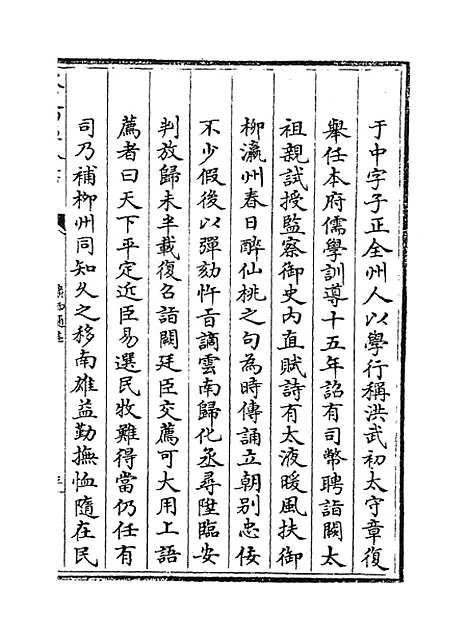 于中字子正全州人以學行稱洪武初太守章復
舉任本府儒學訓導十五年詔有司幣聘詣闕太
祖親試授監察御史内直賦詩有太液暖風扶御
柳瀛州春日醉仙桃之句為時傳誦立朝别忠佞
不少假後以彈劾忤旨謫雲南歸化丞尋陞臨安
判放歸未半載復召詣闕廷臣交薦可大用上語
薦者曰天下平定近臣易選民牧難得當仍任有
司乃補柳州同知久之移南雄益勤撫恤隨在民
廣西通志